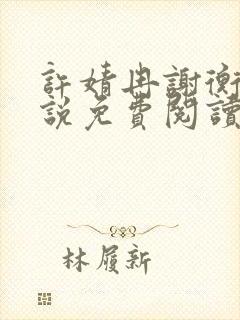 許婧冉謝衡
說免費閱讀
林履新